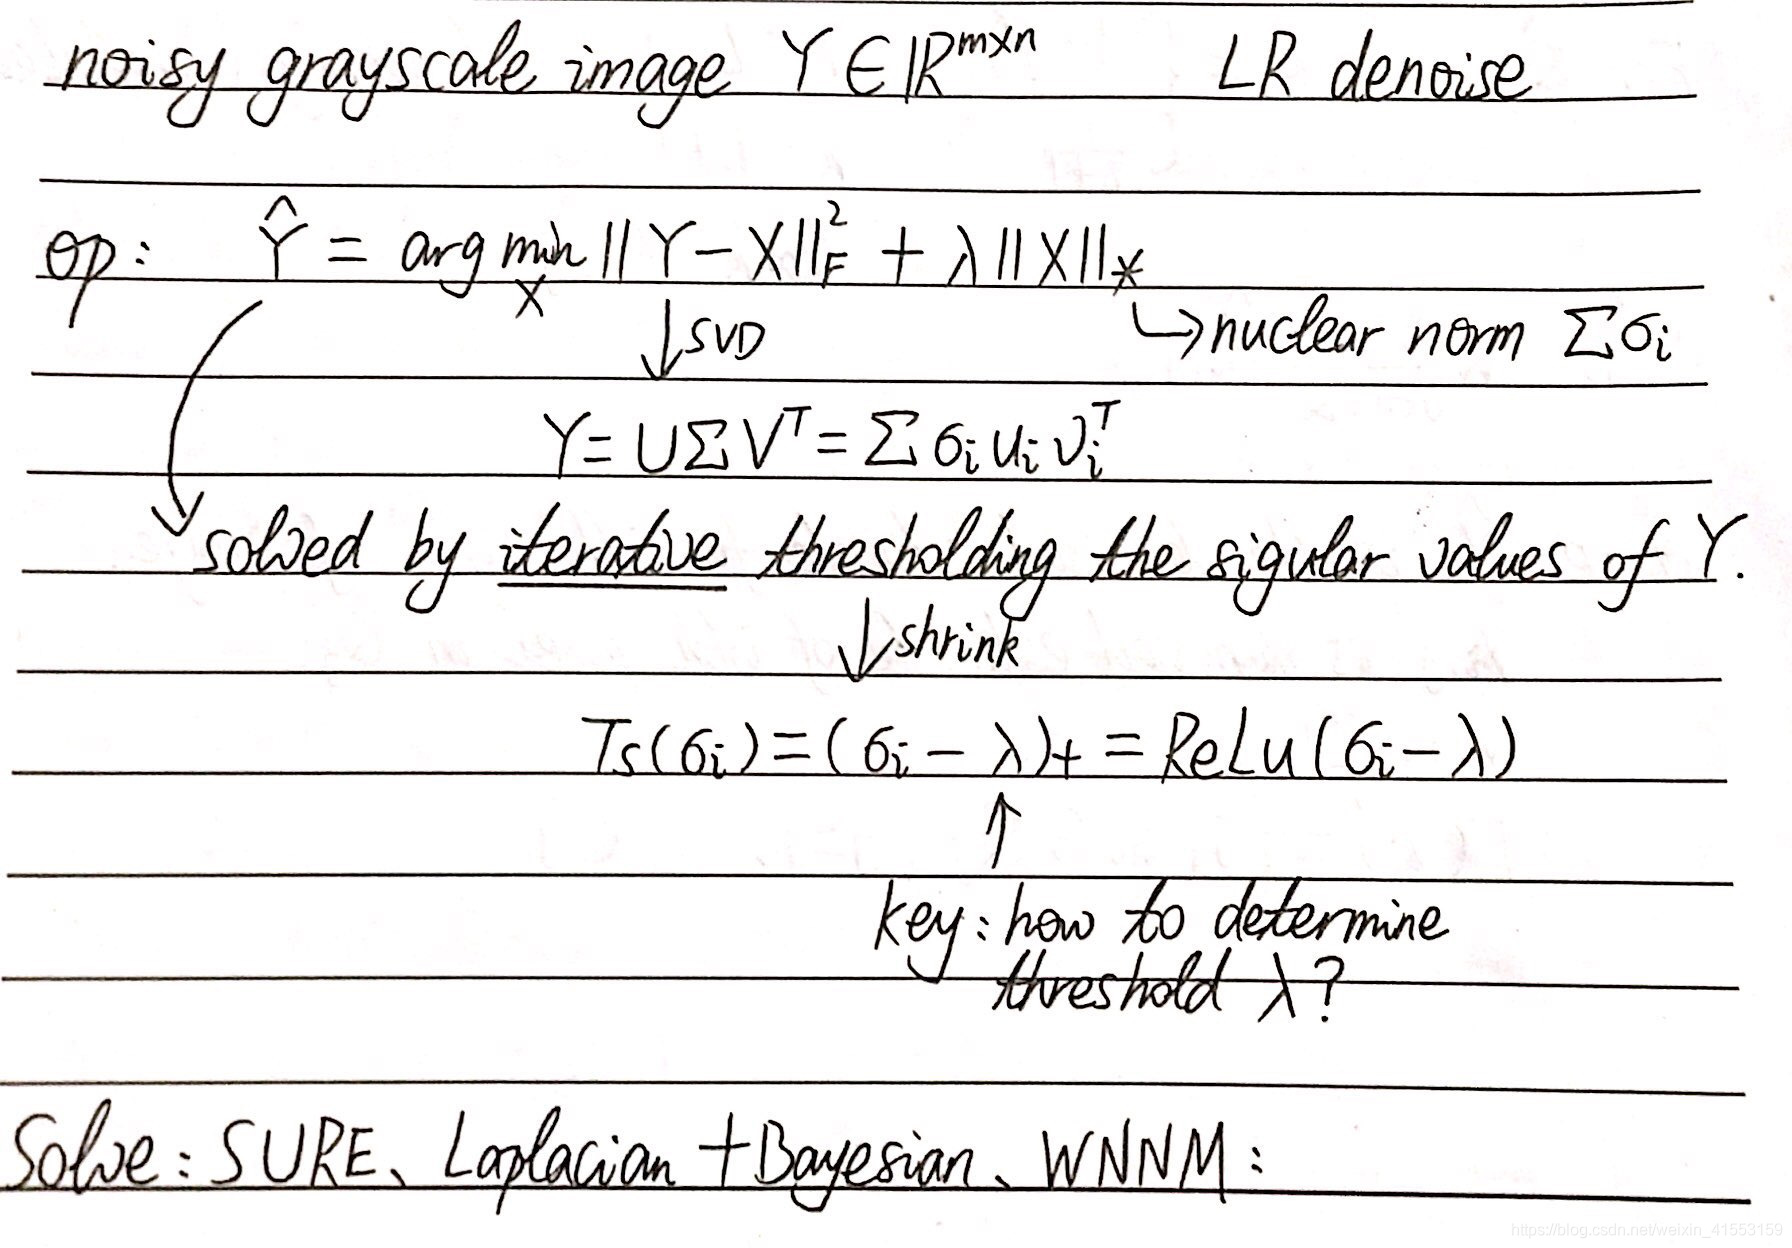 noisy grayscale image Y ∈ ℝ^{m×n} LR denoise
op: Ŷ = arg min_X ||Y − X||_F^2 + λ||X||_*
↓ SVD ↳ nuclear norm Σσ_i
Y = UΣV^T = Σ σ_i u_i v_i^T
solved by iterative thresholding the sigular values of Y.
↓ shrink
Ts(σ_i) = (σ_i − λ)+ = ReLu(σ_i − λ)
↑
key: how to determine
threshold λ?
Solve: SURE、Laplacian + Bayesian、WNNM:
https://blog.csdn.net/weixin_41553159